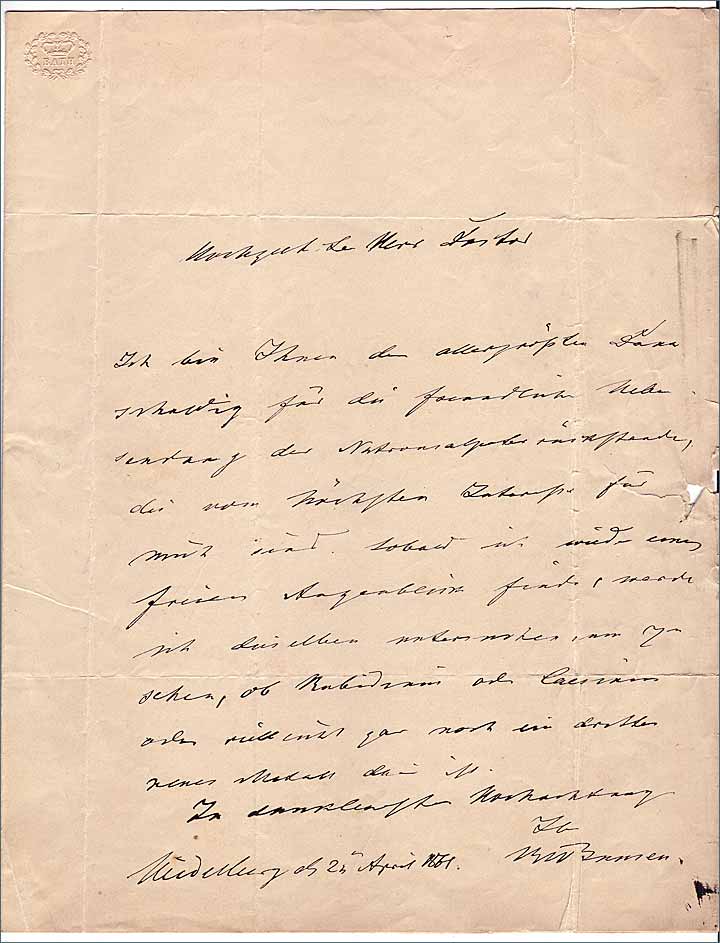 BATH
Hochgeehrter Herr Doctor
Ich bin Ihnen den allergrößten Dank
schuldig für die freundliche Ueber-
sendung der Natronsalpeterrückstände,
die vom höchsten Interesse für
mich sind. Sobald ich wieder einen
freien Augenblick finde, werde
ich dieselben untersuchen, um zu
sehen, ob Rubidium oder Caesium
oder vielleicht gar noch ein drittes
neues Metall darin ist.
In dankbarster Hochachtung
Ihr
Heidelberg d. April 1861. RWBunsen.